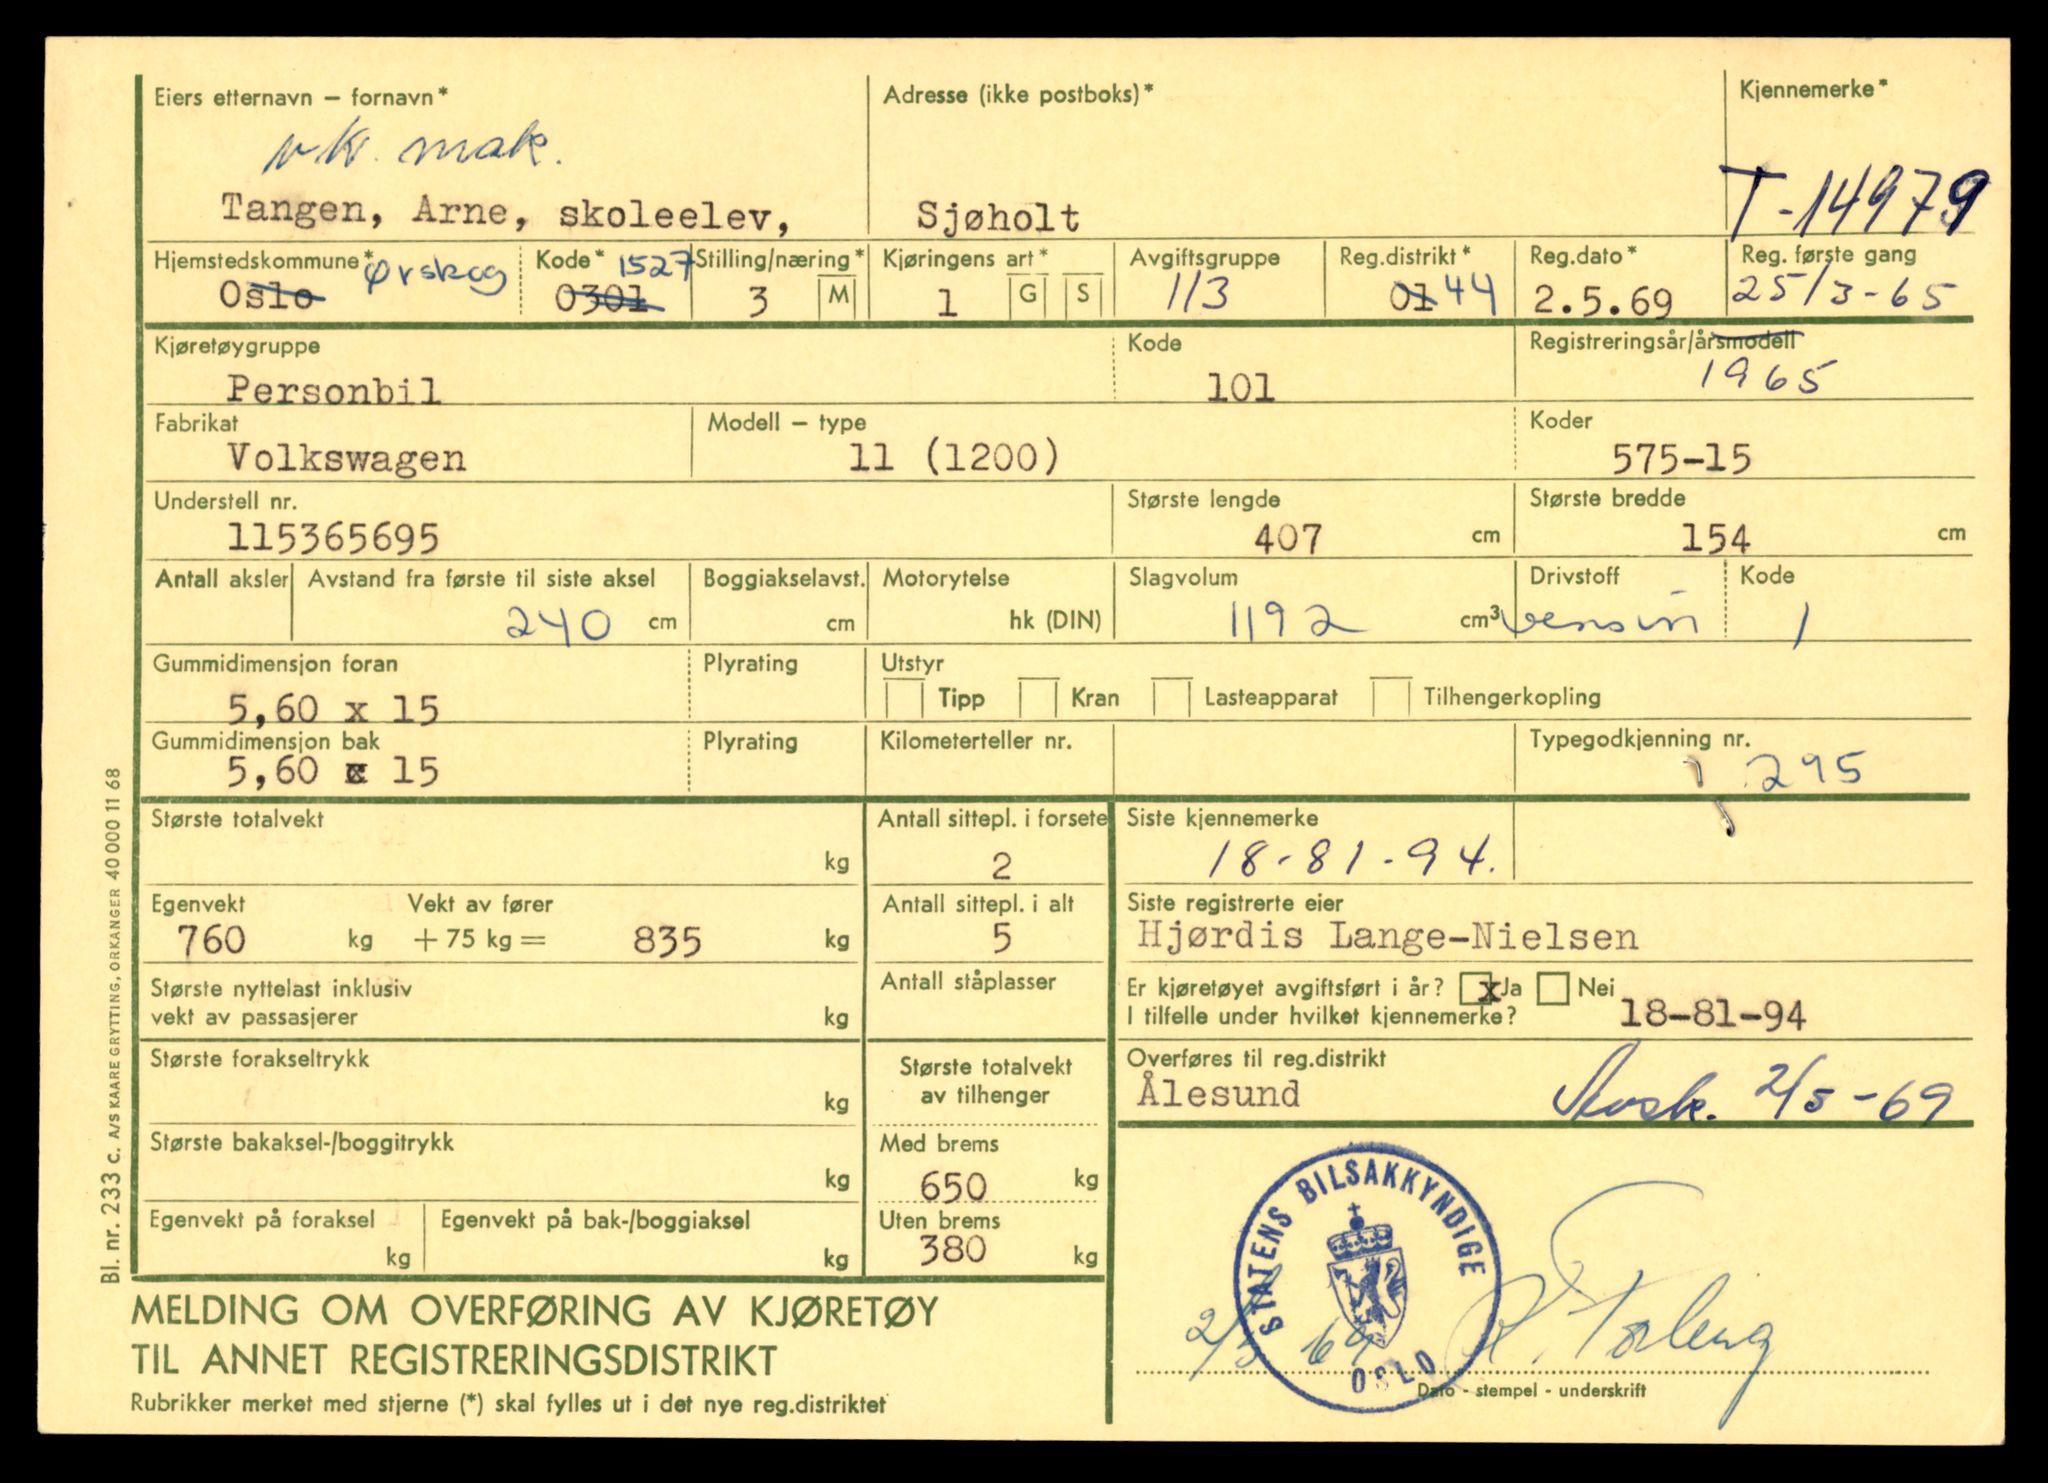 Eiers etternavn – fornavn* Adresse (ikke postboks)* Kjennemerke*
vk. mak.
Tangen, Arne, skoleelev, Sjøholt T-14979
Hjemstedskommune* Ørskog Kode* 1527 Stilling/næring* Kjøringens art* Avgiftsgruppe Reg.distrikt* Reg.dato* Reg. første gang
Oslo 0301 3 M 1 G S 1/3 01 44 2.5.69 25/3-65
Kjøretøygruppe Kode Registreringsår/årsmodell
Personbil 101 1965
Fabrikat Modell – type Koder
Volkswagen 11 (1200) 575-15
Understell nr. Største lengde Største bredde
115365695 407 cm 154 cm
Antall aksler Avstand fra første til siste aksel Boggiakselavst. Motorytelse Slagvolum Drivstoff Kode
240 cm cm hk (DIN) 1192 cm³ bensin 1
Gummidimensjon foran Plyrating Utstyr
5,60 x 15 Tipp Kran Lasteapparat Tilhengerkopling
Gummidimensjon bak Plyrating Kilometerteller nr. Typegodkjenning nr.
5,60 x 15 295
Største totalvekt Antall sittepl. i forsete Siste kjennemerke
kg 2 18-81-94.
Egenvekt Vekt av fører Antall sittepl. i alt Siste registrerte eier
760 kg + 75 kg = 835 kg 5 Hjørdis Lange-Nielsen
Største nyttelast inklusiv Antall ståplasser Er kjøretøyet avgiftsført i år? x Ja Nei
vekt av passasjerer kg I tilfelle under hvilket kjennemerke? 18-81-94
Største forakseltrykk Største totalvekt Overføres til reg.distrikt
kg av tilhenger Ålesund 2/5-69
Største bakaksel-/boggitrykk Med brems
kg 650 kg
Egenvekt på foraksel Egenvekt på bak-/boggiaksel Uten brems
kg kg 380 kg
STATENS BILSAKKYNDIGE
OSLO
2/5 69
Dato - stempel - underskrift
MELDING OM OVERFØRING AV KJØRETØY
TIL ANNET REGISTRERINGSDISTRIKT
Rubrikker merket med stjerne (*) skal fylles ut i det nye reg.distriktet
Bl. nr. 233 c. A/S KAARE GRYTTING, ORKANGER 40 000 11 68